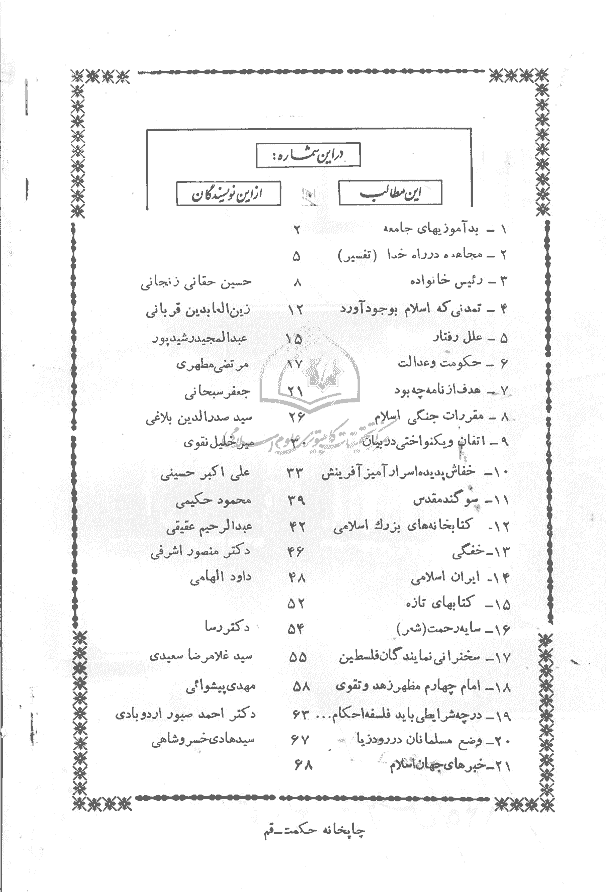 در این شماره:
این مطالب از این نویسندگان
۱ - بدآموزیهای جامعه ۲
۲ - مجاهده در راه خدا (تفسیر) ۵
۳ - رئیس خانواده ۸ حسین حقانی زنجانی
۴ - تمدنی که اسلام بوجود آورد ۱۲ زین العابدین قربانی
۵ - علل رفتار ۱۵ عبدالمجید رشیدپور
۶ - حکومت و عدالت ۱۷ مرتضی مطهری
۷ - هدف از نامه چه بود ۲۱ جعفر سبحانی
۸ - مقررات جنگی اسلام ۲۶ سید صدرالدین بلاغی
۹ - اتقان و یکنواختی در بیان ۳۰ میر خلیل نقوی
۱۰ - خفاش پدیده اسرار آمیز آفرینش ۳۳ علی اکبر حسینی
۱۱ - سوگند مقدس ۳۹ محمود حکیمی
۱۲ - کتابخانه های بزرك اسلامی ۴۲ عبدالرحیم عقیقی
۱۳ - خفگی ۴۶ دکتر منصور اشرفی
۱۴ - ایران اسلامی ۴۸ داود الهامی
۱۵ - کتابهای تازه ۵۲
۱۶ - سایه رحمت (شعر) ۵۴ دکتر رسا
۱۷ - سخنرانی نمایندگان فلسطین ۵۵ سید غلامرضا سعیدی
۱۸ - امام چهارم مظهر زهد و تقوی ۵۸ مهدی پیشوائی
۱۹ - در چه شرایطی باید فلسفه احکام... ۶۳ دکتر احمد صبور اردوبادی
۲۰ - وضع مسلمانان در رودزیا ۶۷ سید هادی خسروشاهی
۲۱ - خبرهای جهان اسلام ۶۸
چاپخانه حکمت - قم